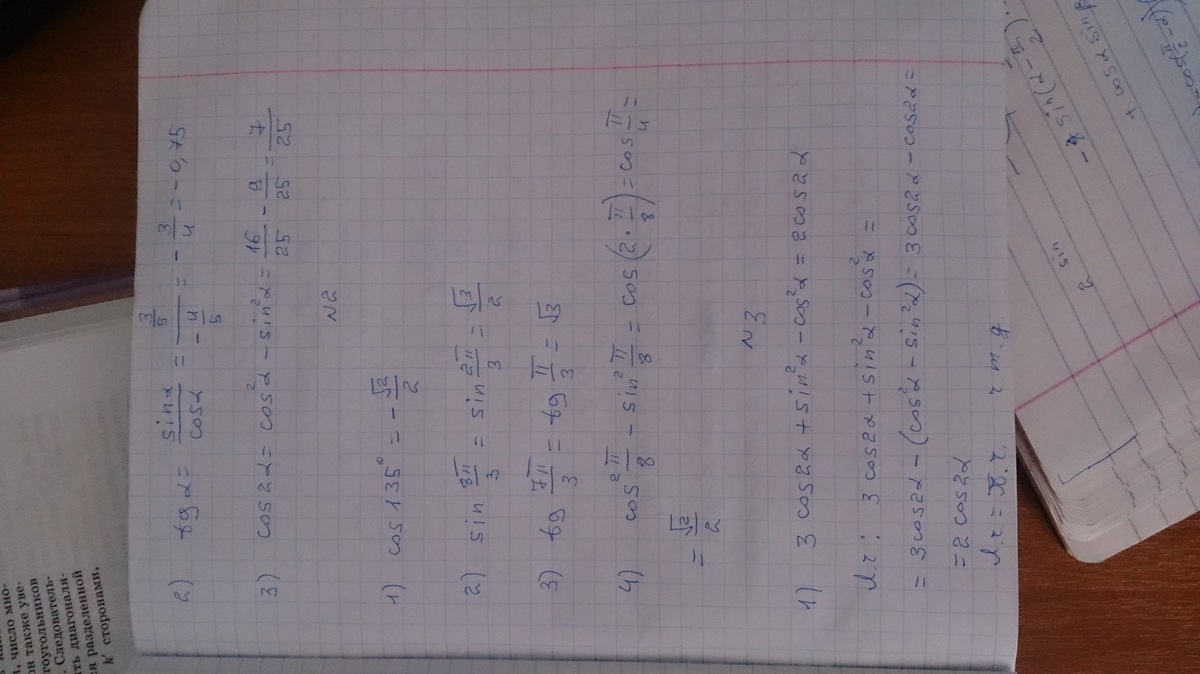 2) tg α = sinα/cosα = (3/5)/(-4/5) = -3/4 = -0,75
3) cos2α = cos²α - sin²α = 16/25 - 9/25 = 7/25
№2
1) cos135° = -√2/2
2) sin 8π/3 = sin 2π/3 = √3/2
3) tg 7π/3 = tg π/3 = √3
4) cos² π/8 - sin² π/8 = cos(2·π/8) = cos π/4 =
= √2/2
№3
1) 3 cos2α + sin²α - cos²α = 2cos2α
Л.ч: 3 cos2α + sin²α - cos²α =
= 3cos2α - (cos²α - sin²α) = 3cos2α - cos2α =
= 2cos2α
Л.ч = П.ч. ч.т.д
, число мно-
он также уве-
гоугольников
. Следователь-
ить диагоналя-
ся разделенной
k′ сторонами,
+ cosα sin
2
sin